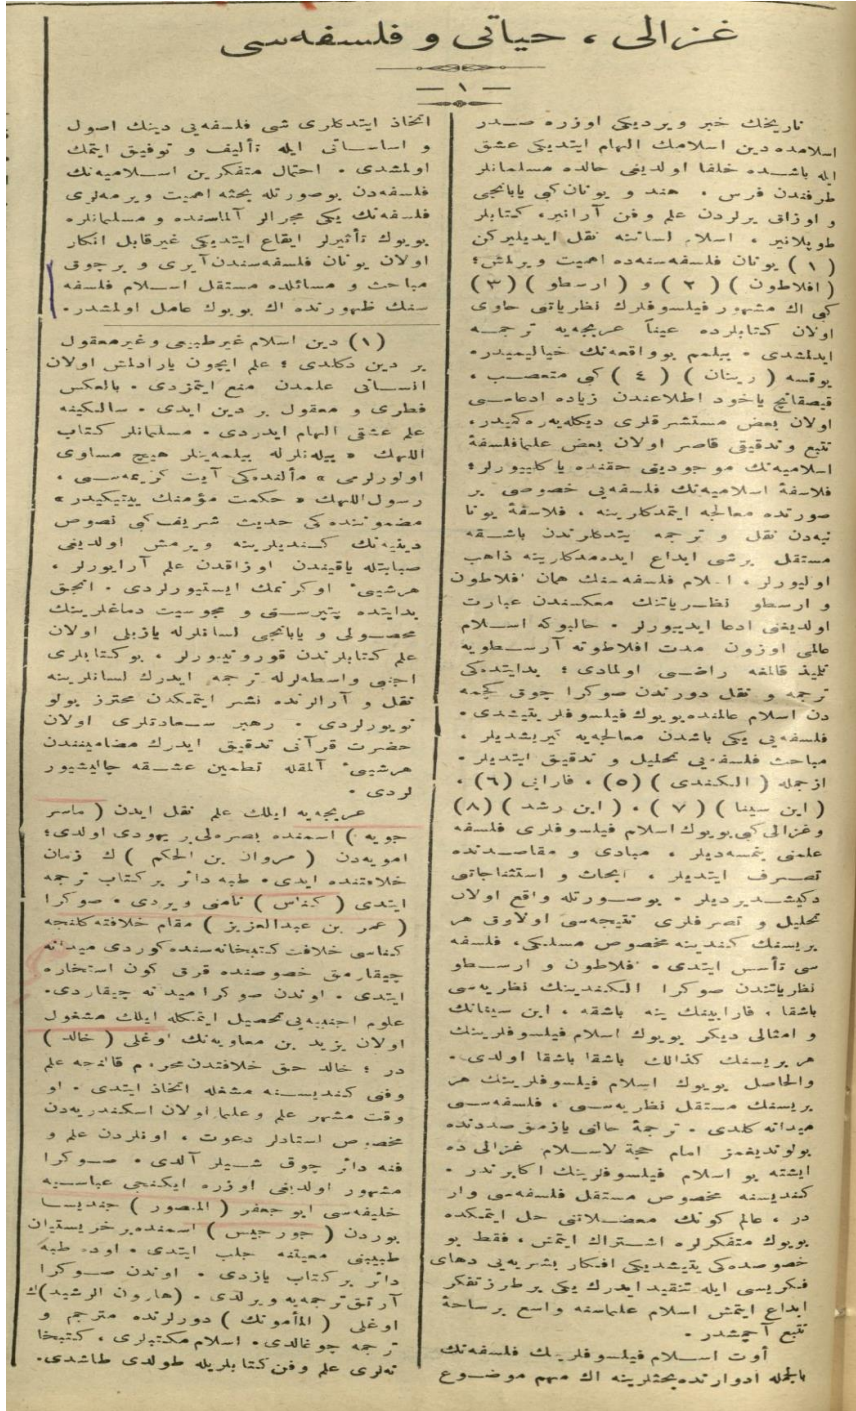 غزالی ، حیاتی و فلسفه‌سی
— ١ —
تاریخك خبر ویردیکی اوزره صـدر
اسلامده دین اسلامك الهام ایتدیکی عشق
ایله باشـده خلفا اولدیغی حالده مسلمانلر
طرفندن فرس ، هند و یونان کبی یابانجی
و اوزاق یرلردن علم وفن آرانیر، کتابلر
طوپلانیر ، اسلام لسانته نقل ایدیلیرکن
( ١ ) یونان فلسفه‌سنه‌ده اهمیت ویرلمش؛
( افلاطون ) ( ٢ ) و ( ارسطو ) ( ٣ )
کبی اك مشهور فیلسوفلرك نظریاتی حاوی
اولان کتابلرده عیناً عربجه‌یه ترجمـه
ایدلمشدی . بیلمم بوواقعه‌نك خیالیمیدر.
یوقسه ( رینان ) ( ٤ ) کبی متعصـب ،
قیصقانج یاخود اطلاعندن زیاده ادعاسـی
اولان بعض مستشرقلری دیکله‌یه‌ره‌کمیدر.
تتبع وتدقیقی قاصر اولان بعض علما فلسفهٔ
اسلامیه‌نك موجودیتی حقنده یاکلییورلر؛
فلاسفهٔ اسلامیه‌نك فلسفه‌یی خصوصی بر
صورتده معالجه ایتمدکلرینه ، فلاسفهٔ یونا
نیه‌دن نقل و ترجمه یتدکلرندن باشـقه
مستقل برشی ابداع ایده‌مدکلرینه ذاهب
اولیورلر . اسلام فلسفه‌سنك همان افلاطون
و ارسطو نظـریاتنك معکسندن عبارت
اولدیغنی ادعا ایدییورلر . حالبوکه اسـلام
عالمی اوزون مدت افلاطونه آرسـطویه
تلمیذ قالمغه راضـی اولمادی ؛ بدایتده‌کی
ترجمه و نقل دورندن صوکرا چوق کچمه
دن اسلام عالمنده بویوك فیلسوفلر یتیشدی .
فلسفه‌یی یکی باشدن معالجه‌یه کیریشدیلر .
مباحث فلسفه‌یی تحلیل و تدقیق ایتدیلر .
ازجمله ( الکندی ) (٥) ، فارابی (٦) ،
( ابن سینا ) ( ٧ ) ، ( ابن رشد ) (٨)
وغزالی کبی بویوك اسلام فیلسوفلری فلسفه
علمنی بتمسه‌دیلر . مبادی و مقاصـدنده
تصـرف ایتدیلر . ابحاث و استنتاجاتی
دکیشـدیردیلر . بوصـورتله واقع اولان
تحلیل و تصرفلری نتیجه‌سی اولاوق هر
بریسنك کندینه مخصوص مسلکی، فلسفه
سی تأسس ایتدی . افلاطون و ارسـطو
نظریاتندن صوکرا الکندینك نظریه‌سی
باشقا ، فارابینك ینه باشقه ، ابن سینانك
و امثالی دیکر بویوك اسلام فیلسوفلرینك
هر بریسنك کذالك باشقا باشقا اولدی .
والحاصل بویوك اسلام فیلسوفلرینك هر
بریسنك مستقل نظریه‌سـی ، فلسفه‌سـی
میدانه کلدی . ترجمهٔ حالنی یازمق صددنده
بولوندیغمز امام حجة الاسـلام غزالی ده
ایشته بو اسلام فیلسوفلرینك اکابرندر .
کندیسنه مخصوص مستقل فلسفه‌سی وار
در ، عالم کونك معضـلاتنی حل ایتمکده
بویوك متفکرلره اشـتراك ایتمش ، فقط بو
خصوصده‌کی یتیشدیکی افکار بشریه‌یی دهای
فکریسی ایله تنقید ایدرك یکی برطرز تفکر
ابداع ایتمش اسلام علماسنه واسع برساحهٔ
تتبع آچمشدر .
أوت اسـلام فیلسوفلرینك فلسفه‌نك
بالجمله ادوارنده بحثلرینه اك مهم موضـوع
اتخاذ ایتدکلری شی فلسفه‌یی دینك اصول
و اساسـاتی ایله تألیف و توفیق ایتمك
اولمشدی . احتمال متفکرین اسـلامیه‌نك
فلسفه‌دن بوصورتله بحثه اهمیت ویرمه‌لری
فلسفه‌نك یکی مجرالر آلماسنده و مسلمانلره
بویوك تأثیرلر ایقاع ایتدیکی غیرقابل انکار
اولان یونان فلسفه‌سندن آیری و برچوق
مباحث و مسائلده مستقل اسـلام فلسفه
سنك ظهورنده اك بویوك عامل اولمشدر.
(١) دین اسلام غیرطبیعی وغیرمعقول
بر دین دکلدی ؛ علم ایچون یارادلمش اولان
انسـانی علمدن منع ایتمزدی . بالعکس
فطری و معقول بر دین ایدی . سالکینه
علم عشقی الهام ایدردی . مسلمانلر کتاب
اللهك « بیله‌نلرله بیلمه‌ینلر هیچ مساوی
اولورلرمی » مآلنده‌کی آیت کریمه‌سـی ،
رسول‌اللهك « حکمت مؤمنك ییتیکیدر »
مضموننده کی حدیث شریف کبی نصوص
دینیه‌نك کـندیلرینه ویرمش اولدیغی
صبابتله یاقیندن اوزاقدن علم آرایورلر ،
هرشیئی اوکرنمك ایستیورلردی . انجق
بدایتده پتپرسـتی و مجوسیت دماغلرینك
محصـولی و یابانجی لسانلرله یازیلی اولان
علم کتابلرندن قورونیورلر ، بوکتابلری
اجنبی واسطه‌لرله ترجمه ایدرك لسانلرینه
نقل و آرالرنده نشر ایتمکدن محترز بولو
نویورلردی . رهبر سـعادتلری اولان
حضرت قرآنی تدقیق ایدرك مضامینندن
هرشیئی آلمقله تطمین عشـقه چالیشیور
لردی .
عربجه‌یه ایلك علم نقل ایدن ( ماسر
جویه ) اسمنده بصره‌لی بر یهودی اولدی؛
امویه‌دن ( مروان بن الحکم ) ك زمان
خلافتنده ایدی . طبه دائر برکتاب ترجمه
ایتدی ( کناس ) نامنی ویردی . صوکرا
( عمر بن عبدالعزیز ) مقام خلافته کلنجه
کناسی خلافت کتبخانه‌سنده کوردی میدانه
چیقارمق خصوصنده قرق کون استخاره
ایتدی . اوندن صوکرا میدانه چیقاردی.
علوم اجنبیه‌یی تحصیل ایتمکله ایلك مشغول
اولان یزید بن معاویه‌نك اوغلی ( خالد )
در ؛ خالد حق خلافتدن محروم قالنجه علم
وفنی کندیسـنه مشغله اتخاذ ایتدی . او
وقت مشهر علم و علما اولان اسکندریه‌دن
مخصـوص استادلر دعوت ، اونلردن علم و
فنه دائر چوق شـیلر آلدی . صـوکرا
مشهور اولدیغی اوزره ایکنجی عباسـیه
خلیفه‌سی ابو جعفر ( المنصور ) جندیسـا
بوردن ( جورجیس ) اسمنده بر خریستیان
طبیبنی معیتنه جلب ایتدی ، اوده طبه
دائر برکتاب یازدی . اوندن صـوکرا
آرتق ترجمه‌یه ویرلدی . (هارون الرشید)ك
اوغلی ( المأمونك ) دورلرنده مترجم و
ترجمه چوغالدی . اسلام مکتبلری ، کتبخا
نه‌لری علم وفن کتابلریله طولدی طاشدی.